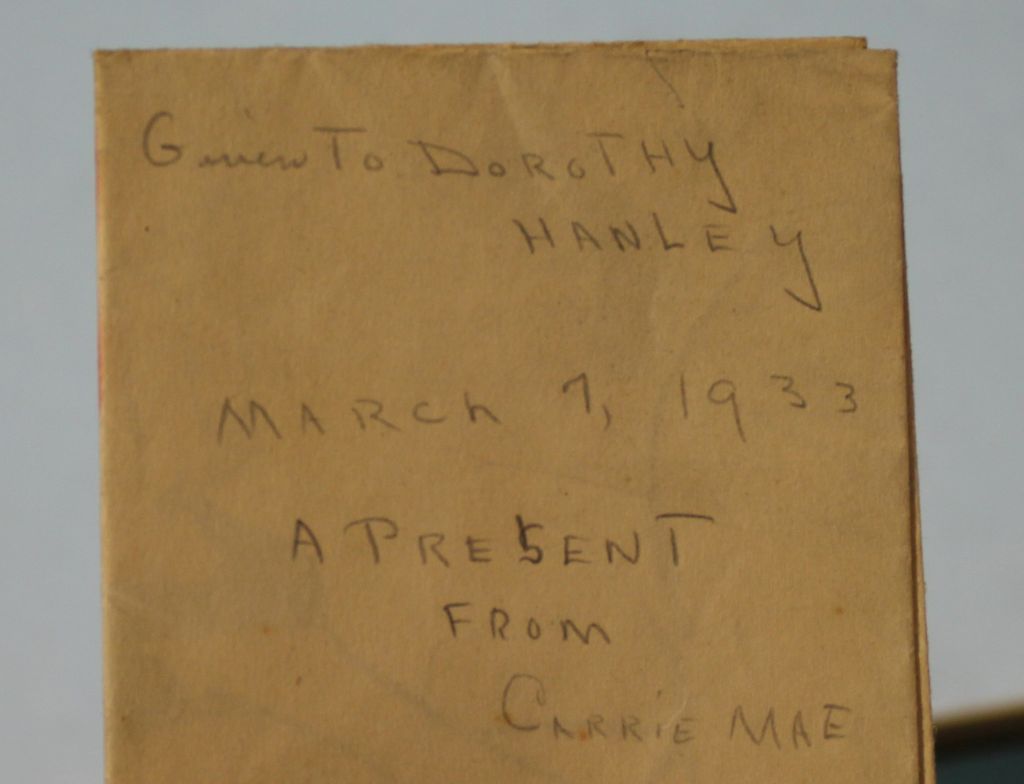 Given To DOROTHY
HANLEY
MARCh 7, 1933
A PRESENT
FROM
CARRIE MAE